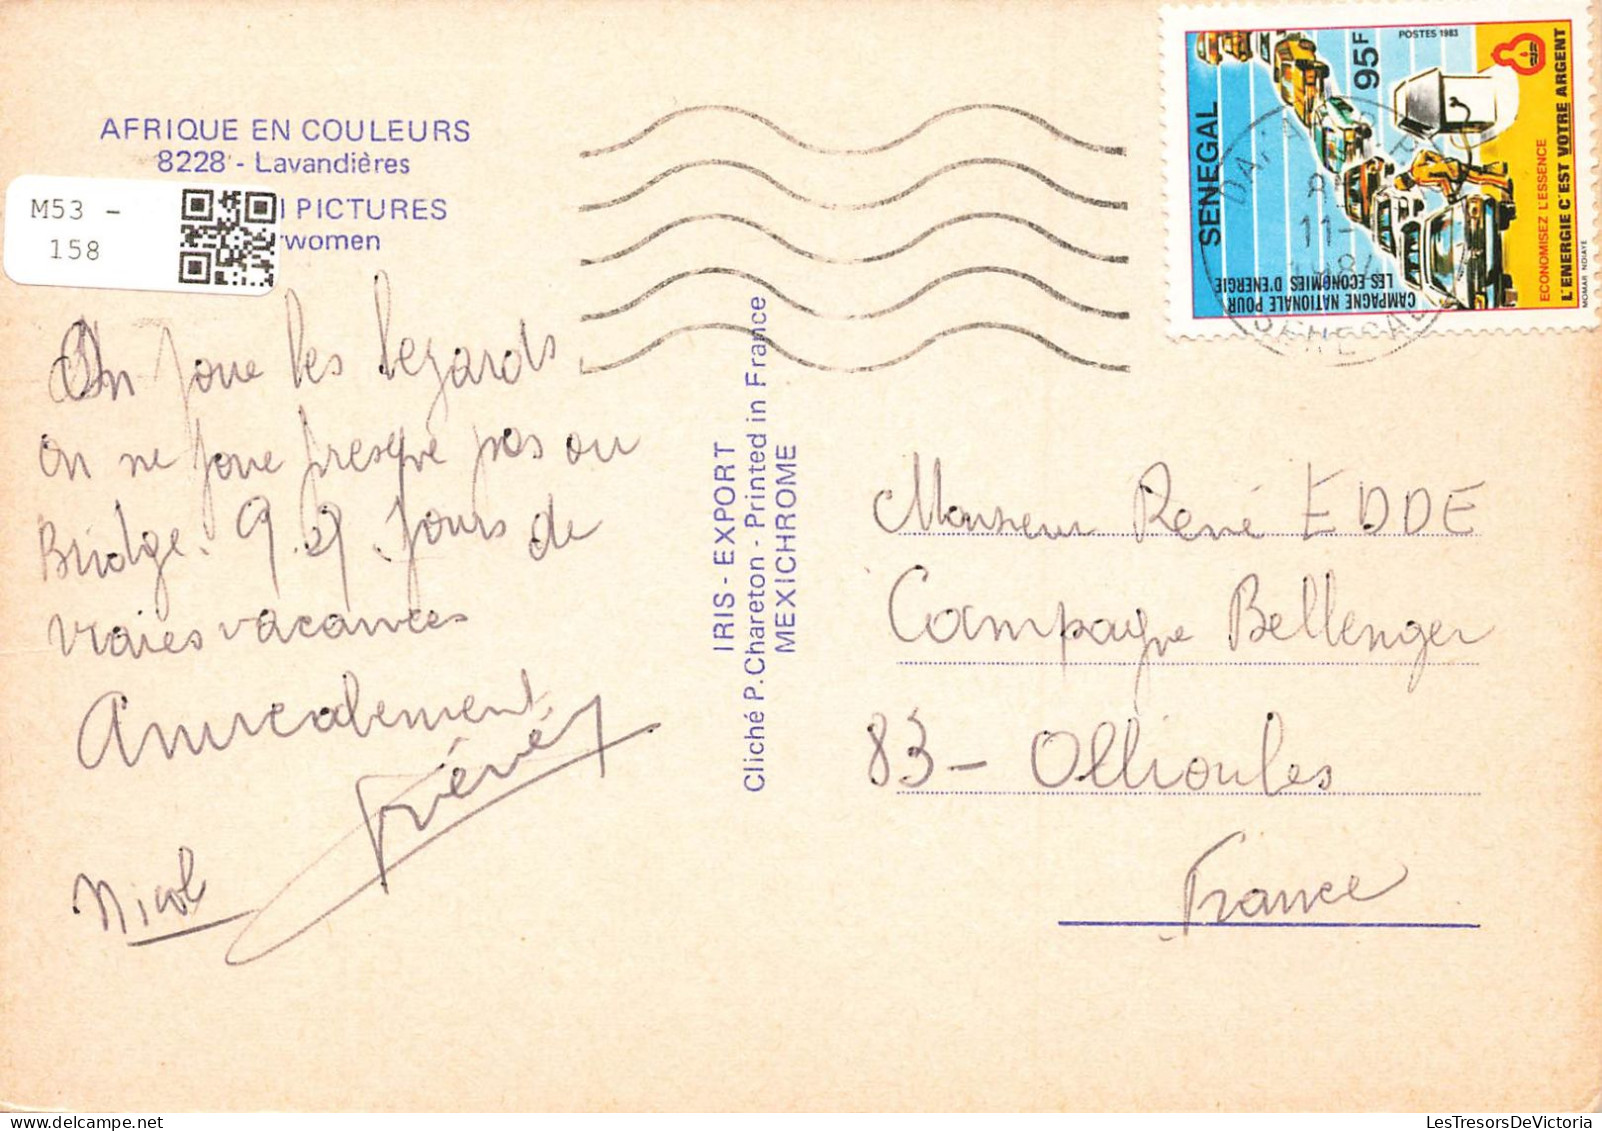 AFRIQUE EN COULEURS
8228 - Lavandières
PICTURES
women
M53 -
158
On joue les legards
on ne joue presque pas au
Bridge. 9.
Jours de
vraies vacances
Amicalement
Nicol
IRIS - EXPORT
Cliché P. Chareton - Printed in France
MEXICHROME
POSTES 1983
95F
SENEGAL
CAMPAGNE NATIONALE POUR
LES ECONOMIES D'ENERGIE
ECONOMISEZ L'ESSENCE
L'ENERGIE C'EST VOTRE ARGENT
MOMAR NDIAYE
Monsieur René EDDE
Campagne Bellenger
83 - Ollioules
France
LesTresorsDeVictoria